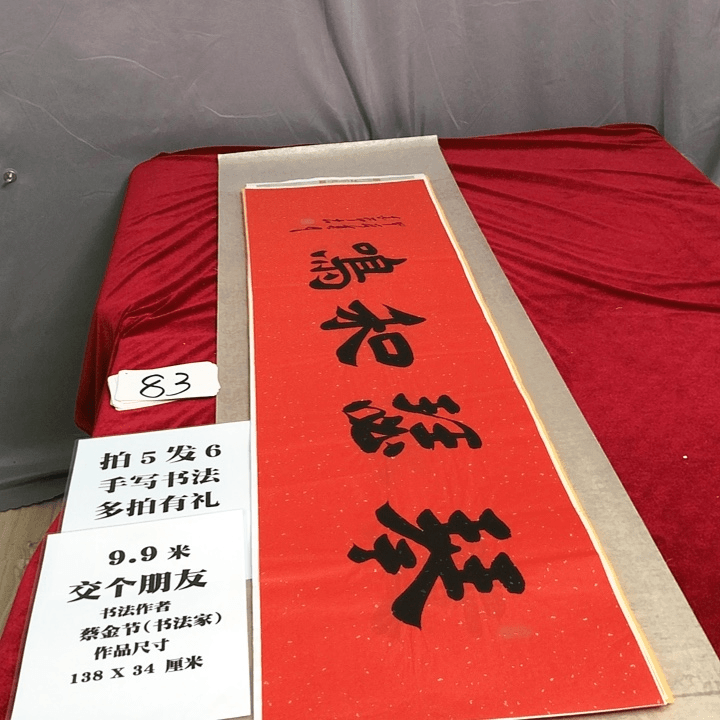 琴瑟和鳴
83
拍5发6
手写书法
多拍有礼
9.9米
交个朋友
书法作者
蔡金节(书法家)
作品尺寸
138 X 34 厘米